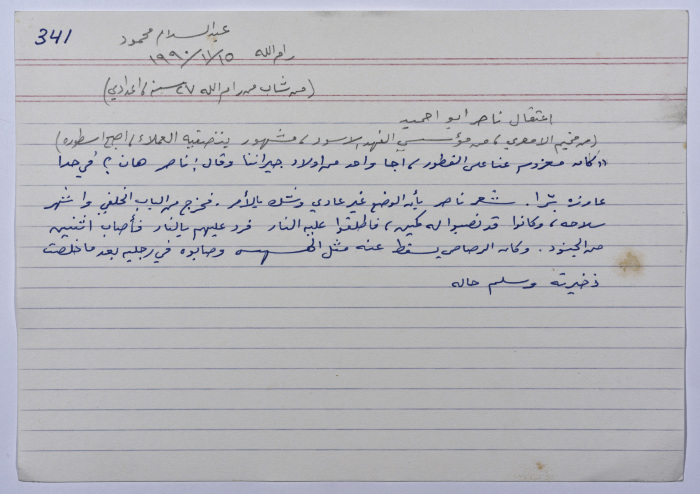 341
عبد السلام محمود
رام الله ١٩٩٠/١١/١٥
(من شاب من رام الله ٢٧ سنة، اعدادي)
اعتقال ناصر ابو احميد
(من مخيم الامعري، من مؤسسي الفهد الاسود، مشهور بتصفية العملاء، اصبح اسطورة)
"كان معزوم عنا على الفطور، اجا واحد من اولاد جيراننا وقال: ناصر هان؟ في حدا
عاوزه برّا. شعر ناصر بأن الوضع غير عادي وشك بالأمر. فخرج من الباب الخلفي واشهر
سلاحه، وكانوا قد نصبوا له كمين، فأطلقوا عليه النار فرد عليهم بالنار فأصاب اثنين
من الجنود. وكان الرصاص يسقط عنه مثل وصابوه في رجليه بعد ما خلصت
ذخيرته وسلم حاله